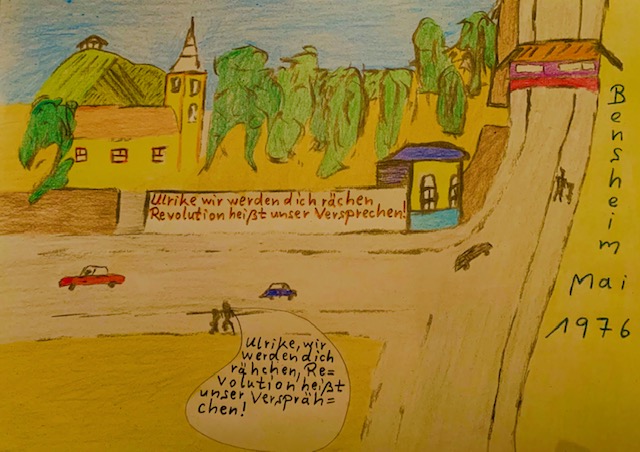 Ulrike wir werden dich rächen
Revolution heißt unser Versprechen!
Ulrike, wir
werden dich
rähchen, Re=
volution heißt
unser Verspräh=
chen!
Bensheim
Mai
1976